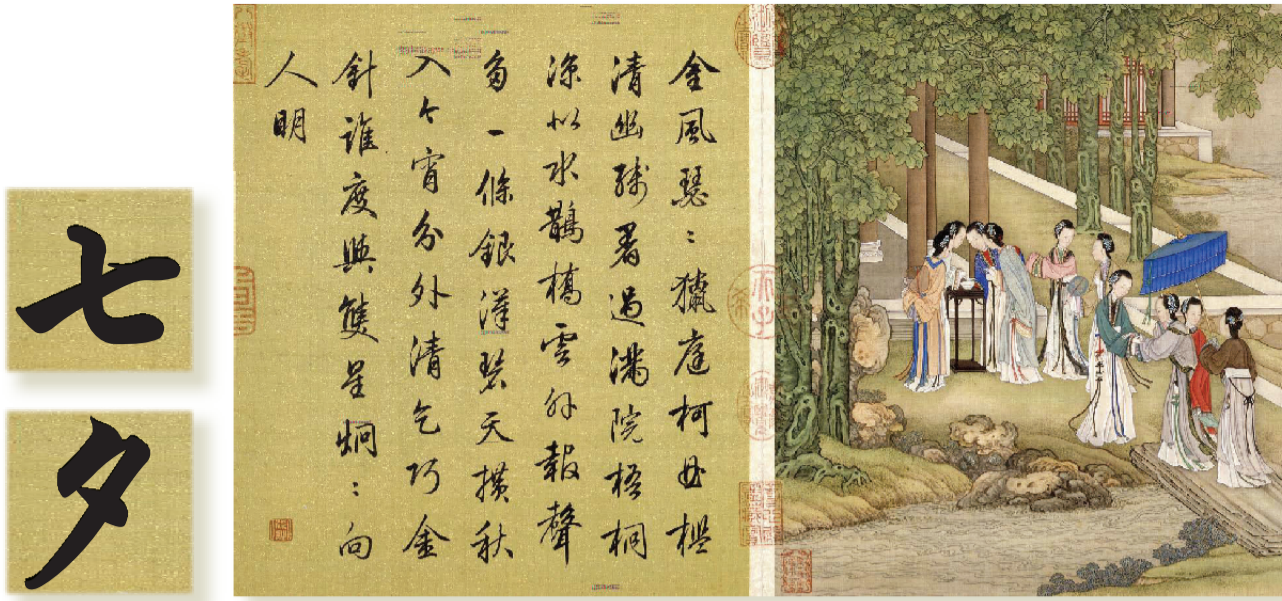 七夕
金風瑟〻獵庭柯曲檻
清幽殘暑過滿院梧桐
涼似水鵲橋雲外報聲
多一條銀漢碧天橫秋
入今宵分外清乞巧金
針誰度與雙星炯〻向
人明